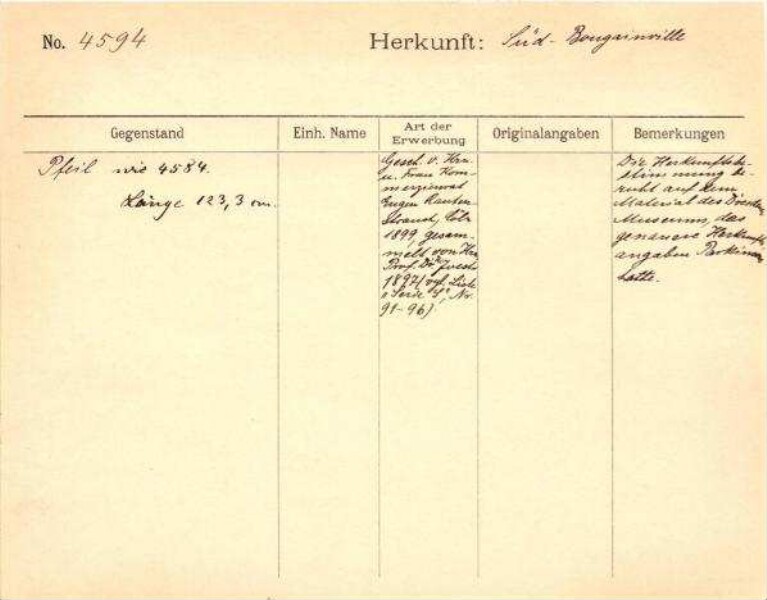 No. 4594
Herkunft: Süd-Bougainville
Gegenstand
Einh. Name
Art der
Erwerbung
Originalangaben
Bemerkungen
Pfeil wie 4584.
Länge 123,3 cm.
Gesch. v. Hrn
u. Frau Kom-
merzienrat
Eugen Rauten-
strauch, Cöln
1899, gesam-
melt von Hrn
Prof. Dr. Joest
1897 (vgl. Liste
Serie Nr.
91-96).
Die Herkunftsbe-
stimmung be-
ruht auf dem
Material des Dresdn.
Museums, das
genauere Herkunfts-
angaben Parkinsons
hatte.